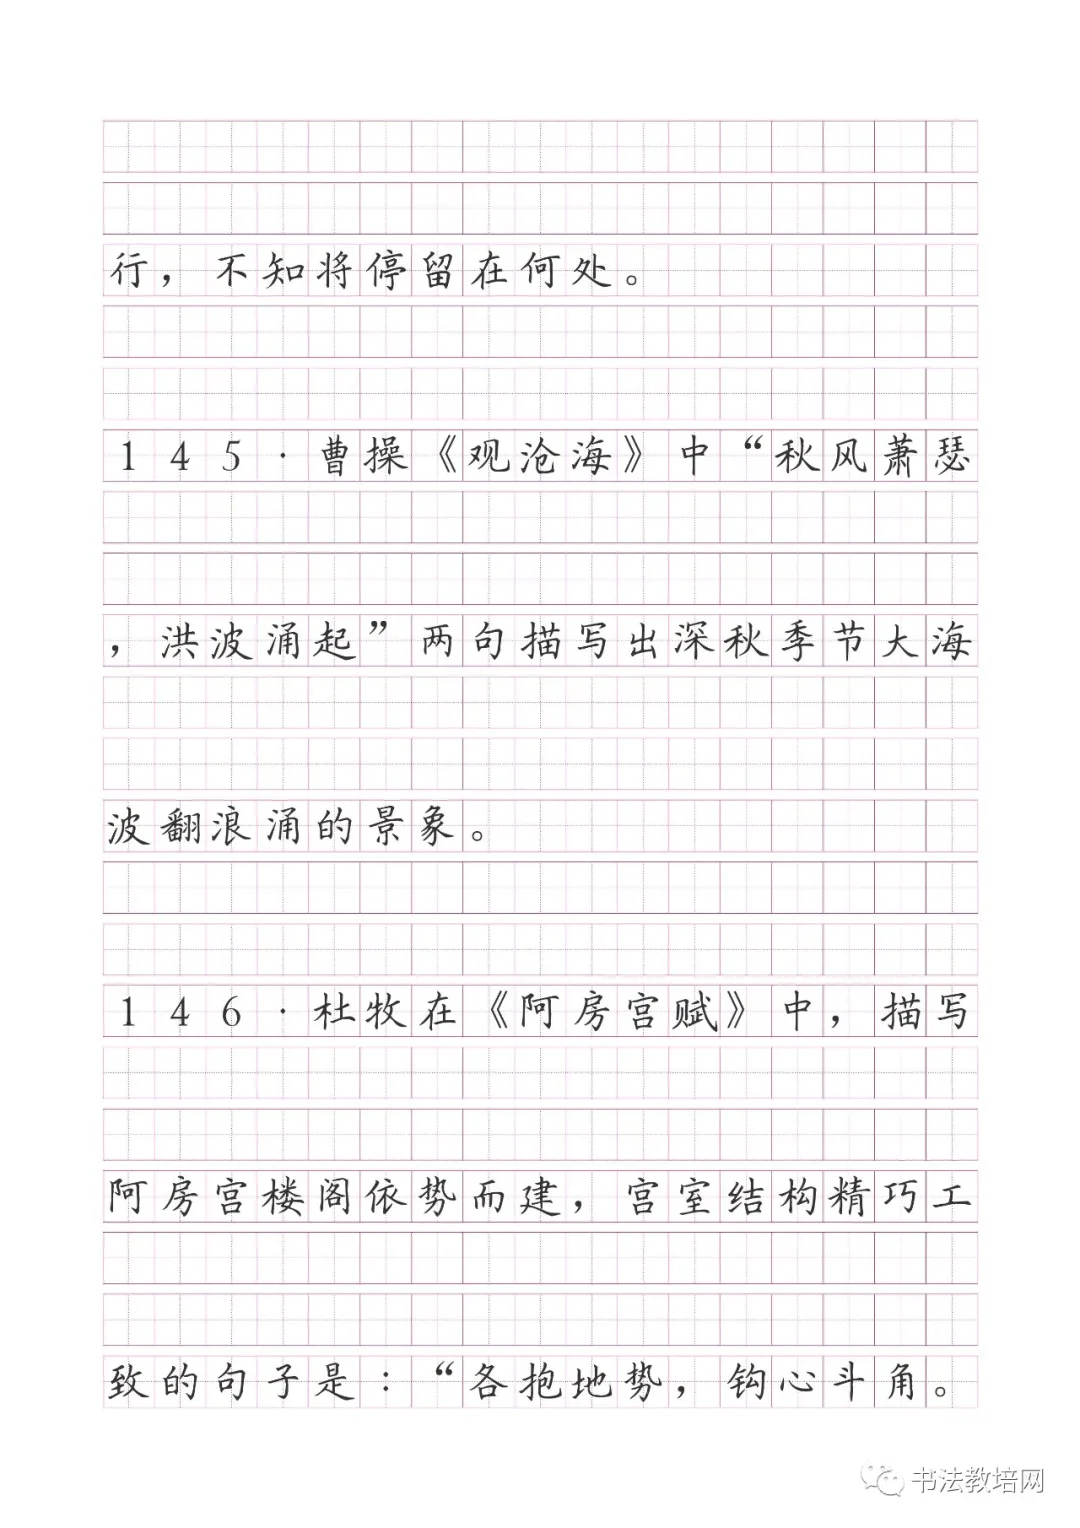 行，不知将停留在何处。
145·曹操《观沧海》中“秋风萧瑟
，洪波涌起”两句描写出深秋季节大海
波翻浪涌的景象。
146·杜牧在《阿房宫赋》中，描写
阿房宫楼阁依势而建，宫室结构精巧工
致的句子是：“各抱地势，钩心斗角。
书法教培网